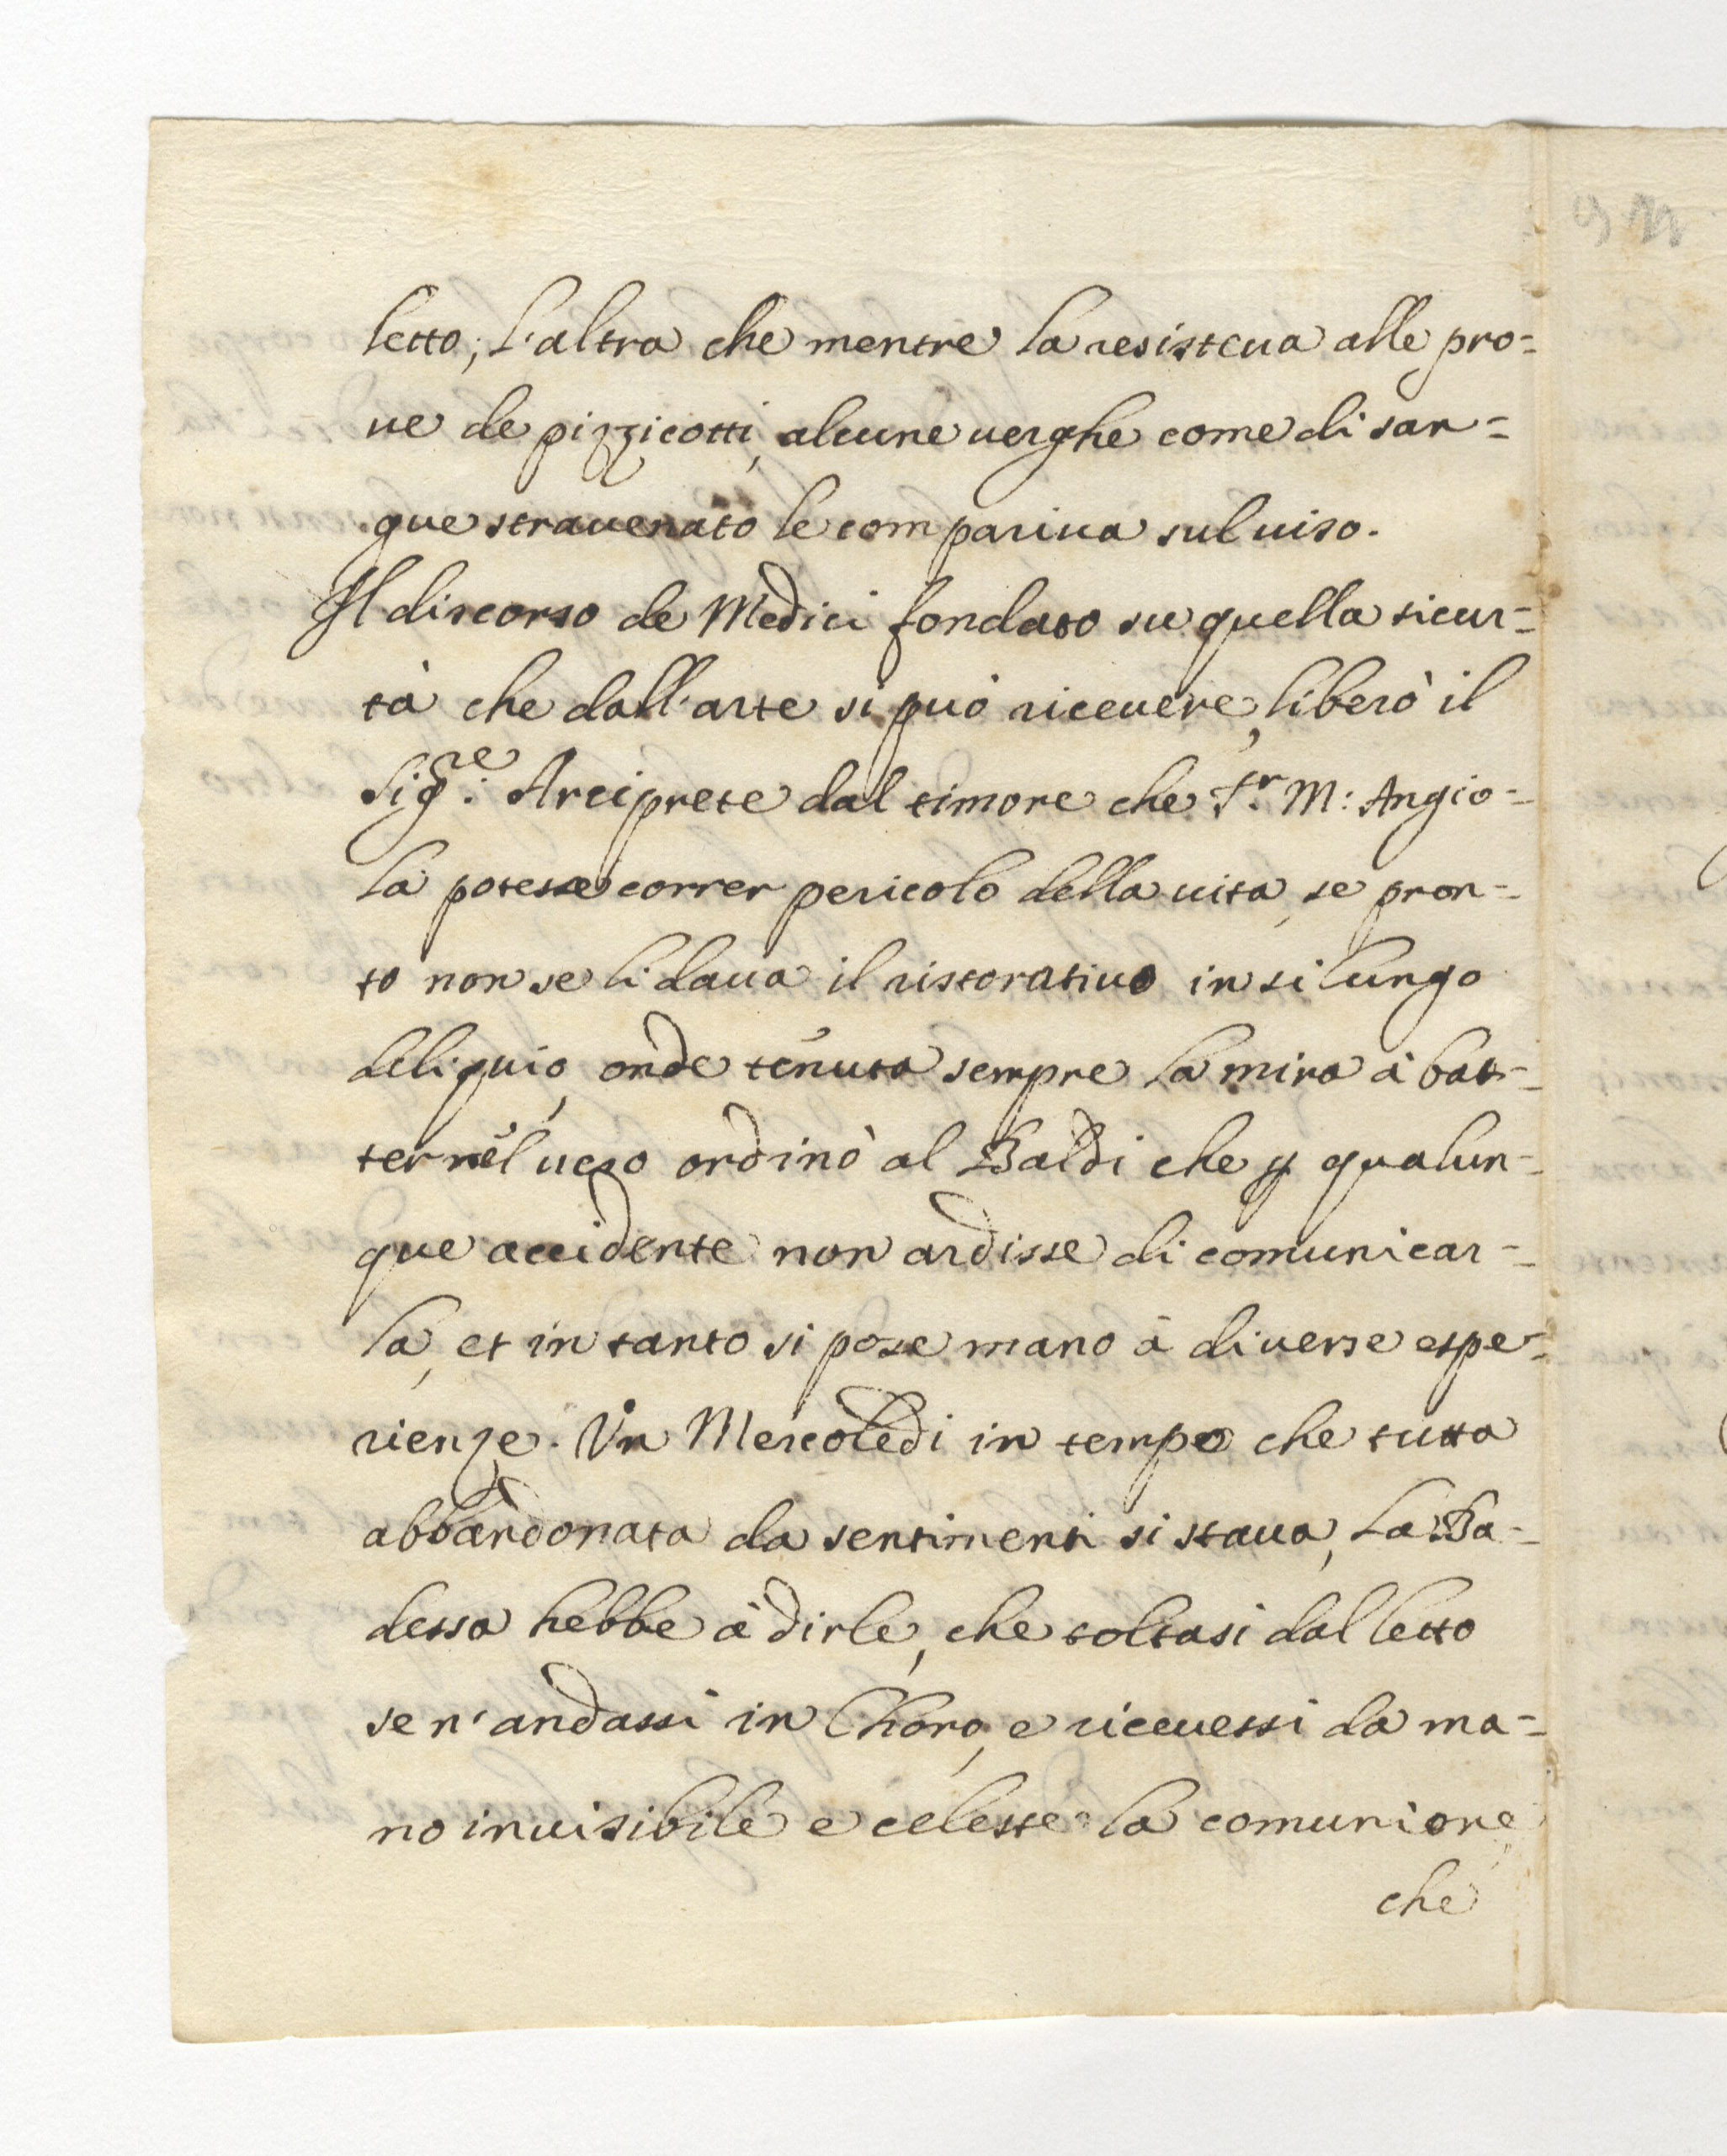 letto; l'altra che mentre la resisteua alle pro=
ue de pizzicotti, alcune uerghe come di san=
gue strauenato le compariua sul uiso.
Il discorso de Medici fondato su quella sicur=
tà che dall'arte si può riceuere, liberò il
Sig.re: Arciprete dal timore che S.r M: Angio=
la potesse correr pericolo della uita, se pron=
to non se li daua il ristoratiuo in si lungo
deliquio, onde tenuta sempre la mira à bat=
ter nel uero ordinò al Baldi che p qualun=
que accidente non ardisse di comunicar=
la, et in tanto si pose mano à diuerse espe=
rienze. Vn Mercoledi in tempo che tutta
abbandonata da sentimenti si staua, la Ba=
dessa hebbe à dirle, che toltasi dal letto
se n'andassi in Choro, e riceuessi da ma=
no inuisibile e celeste la comunione,
che